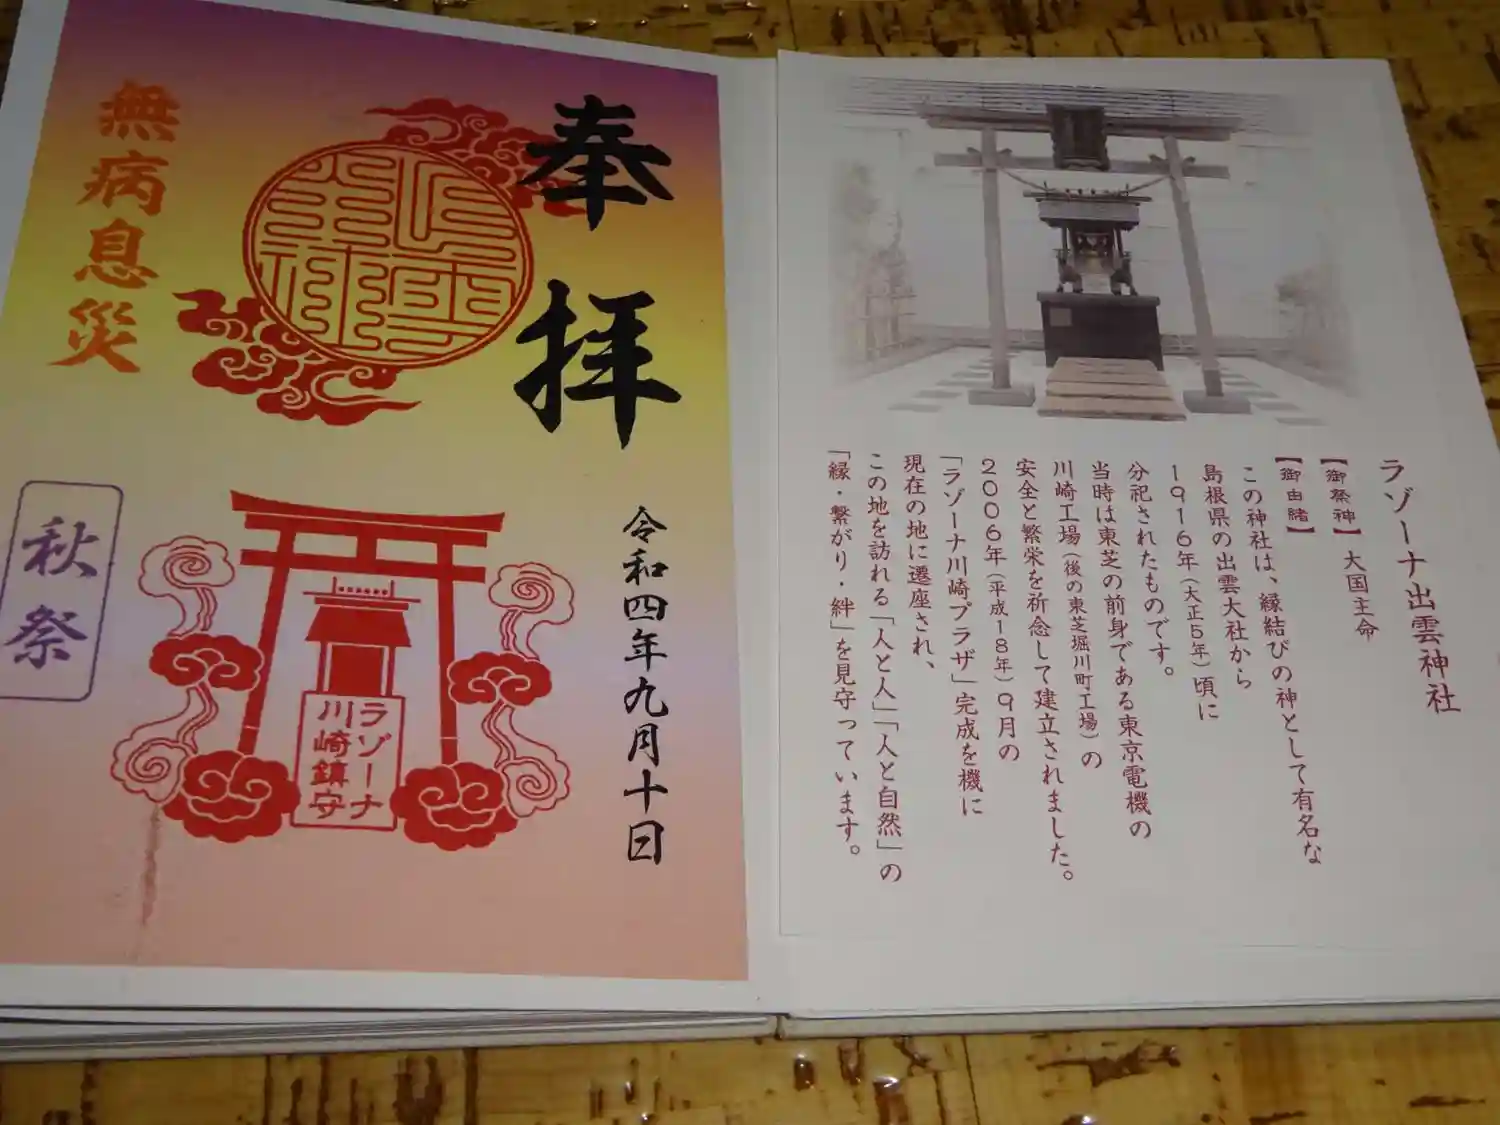 ラゾーナ出雲神社
【御祭神】大国主命
【御由緒】
この神社は、縁結びの神として有名な
島根県の出雲大社から
1916年(大正5年)頃に
分祀されたものです。
当時は東芝の前身である東京電機の
川崎工場(後の東芝堀川町工場)の
安全と繁栄を祈念して建立されました。
2006年(平成18年)9月の
「ラゾーナ川崎プラザ」完成を機に
現在の地に遷座され、
この地を訪れる「人と人」「人と自然」の
「縁・繋がり・絆」を見守っています。
奉拝
令和四年九月十日
ラゾーナ
川崎鎮守
無病息災
秋祭